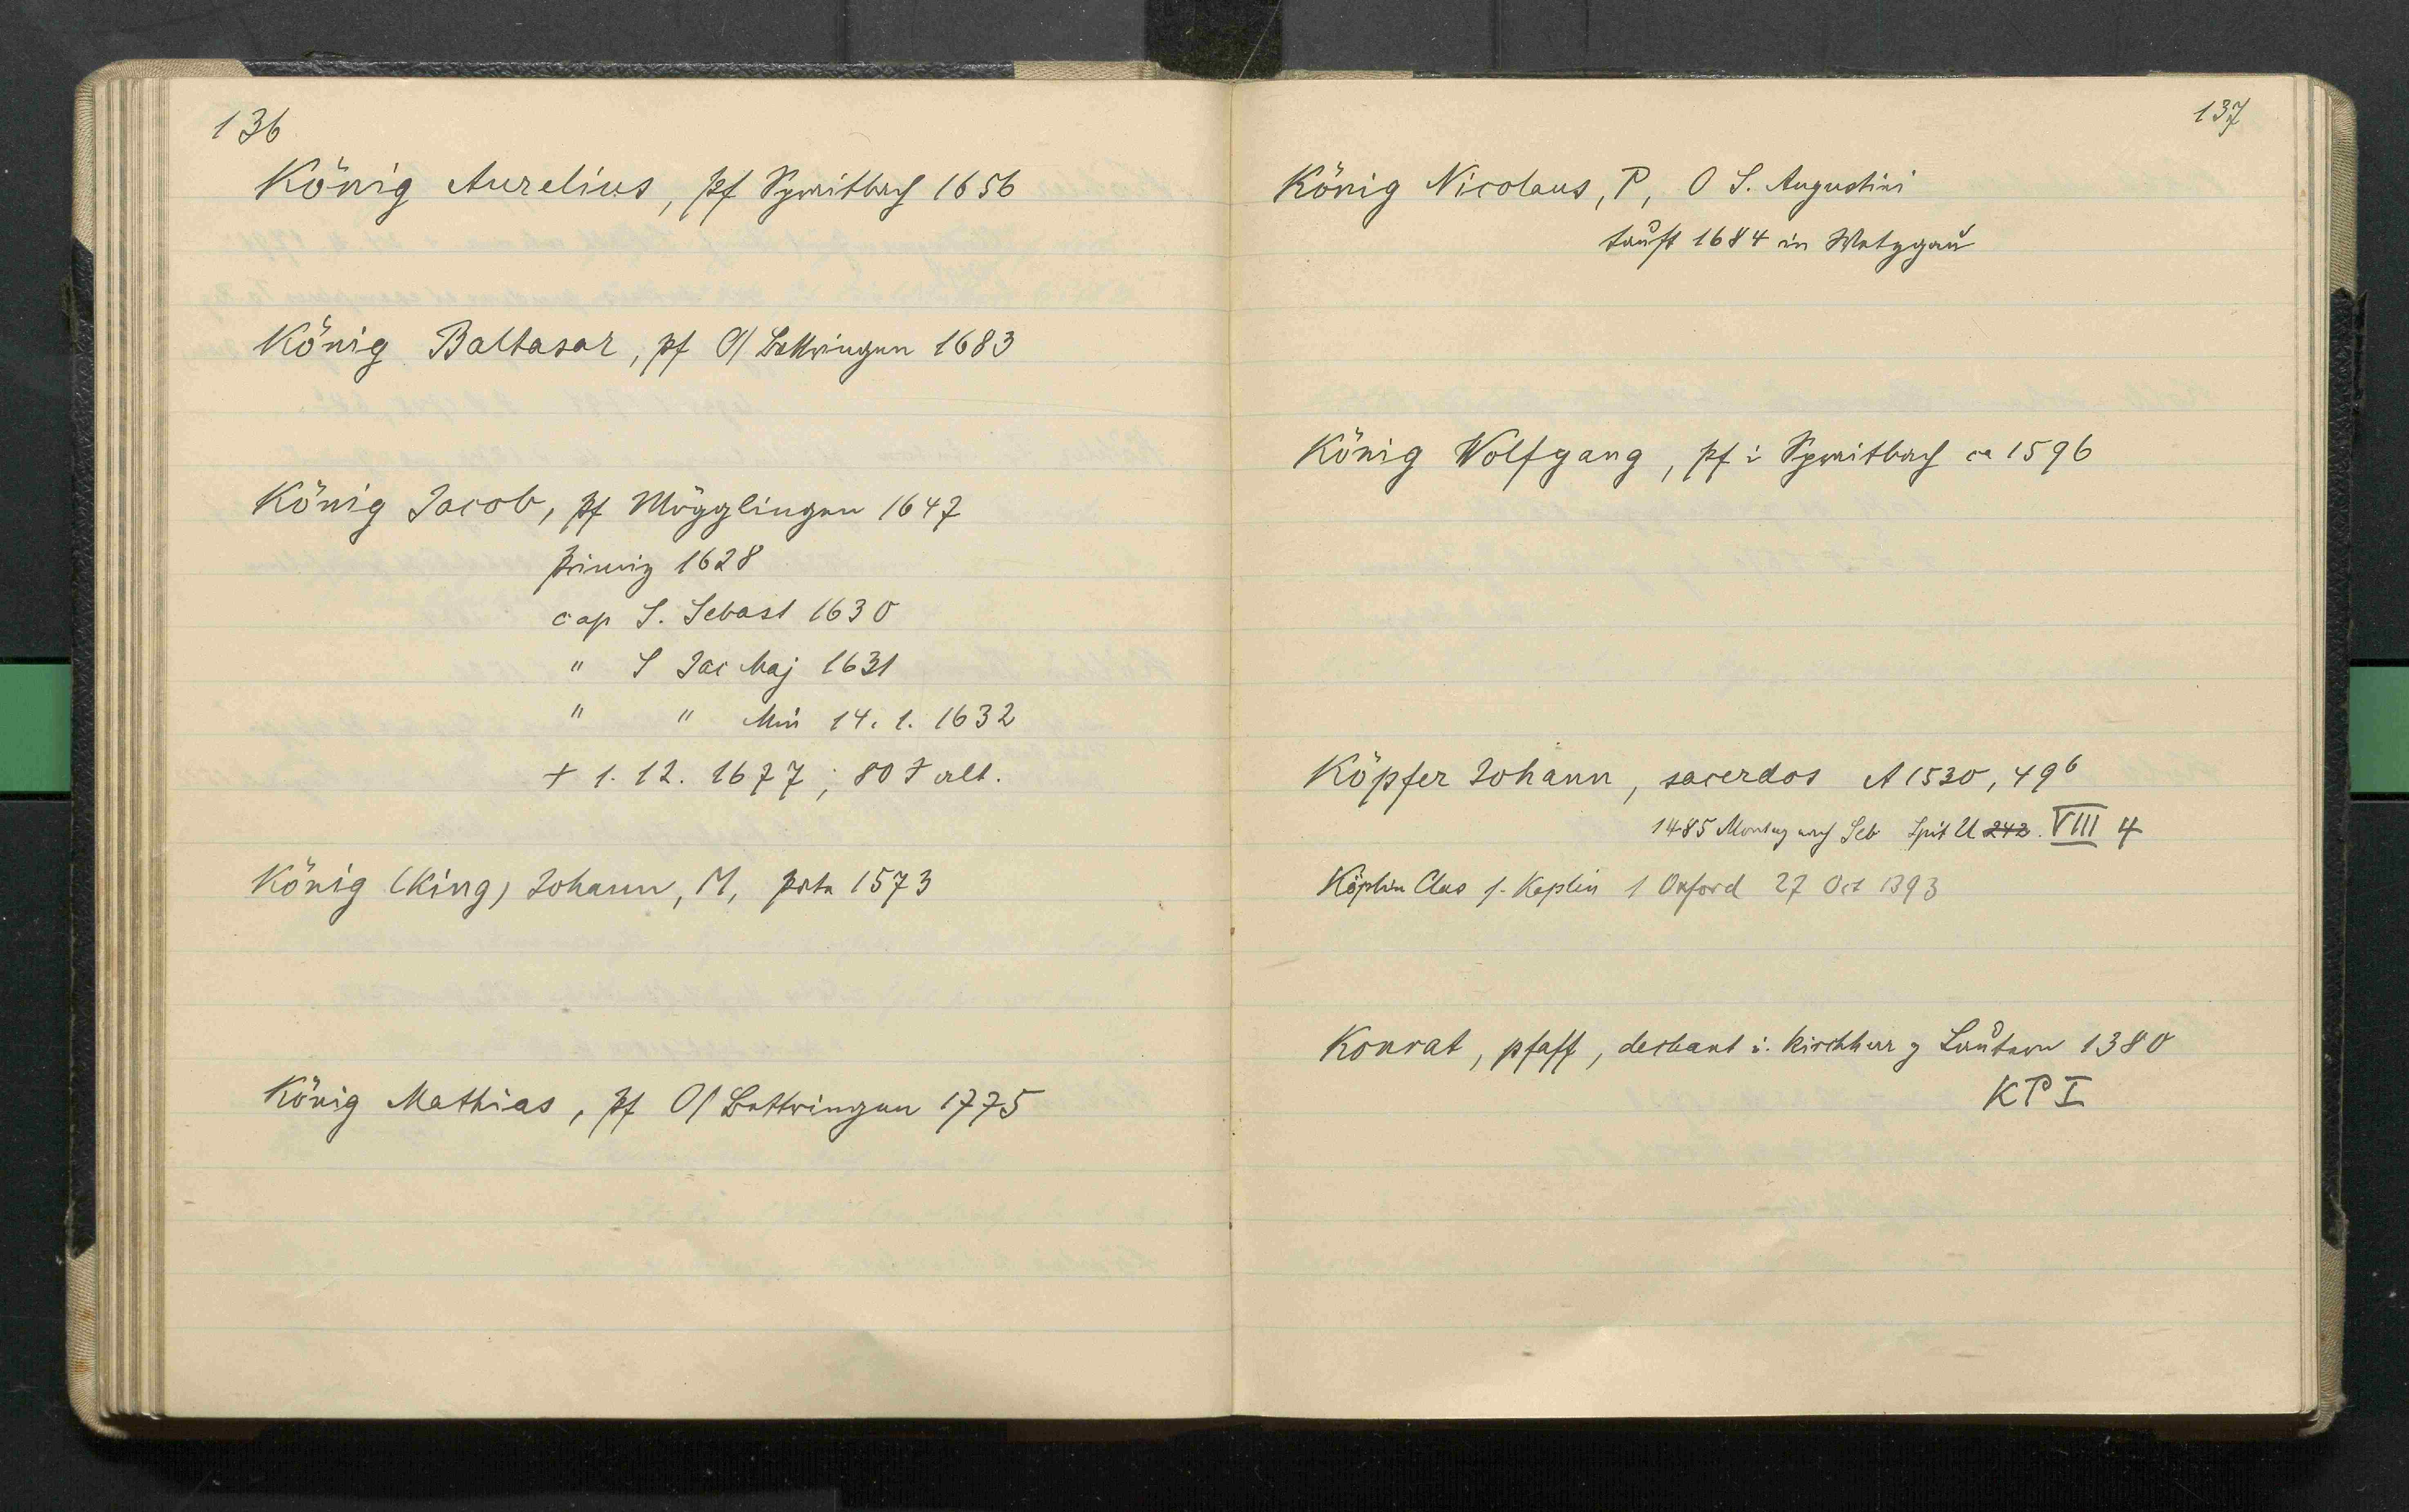 136
König Aurelius, pf Spraitbach 1656
König Baltasar, pf O/Bettringen 1683
König Jacob, pf Mögglingen 1647
Primiz 1628
cap S. Sebast 1630
" S Jac Maj 1631
" " Min 14. 1. 1632
+ 1. 12. 1677; 80 J alt.
König (King) Johann, M, 1573
König Mathias, pf O/Bettringen 1775
137
König Nicolaus, P, O S. Augustini
tauft 1684 in Wetzgau
König Wolfgang, pf i Spraitbach ca 1596
Köpfer Johann, sacerdos A 1530, 49b
1485 Montag nach Seb Spit U 242. VIII 4
Köplin Clas s. Keplin 1 Oxford 27 Oct 1393
Konrat, pfaff, dechant u. kirchherr z Lautern 1380
KP I